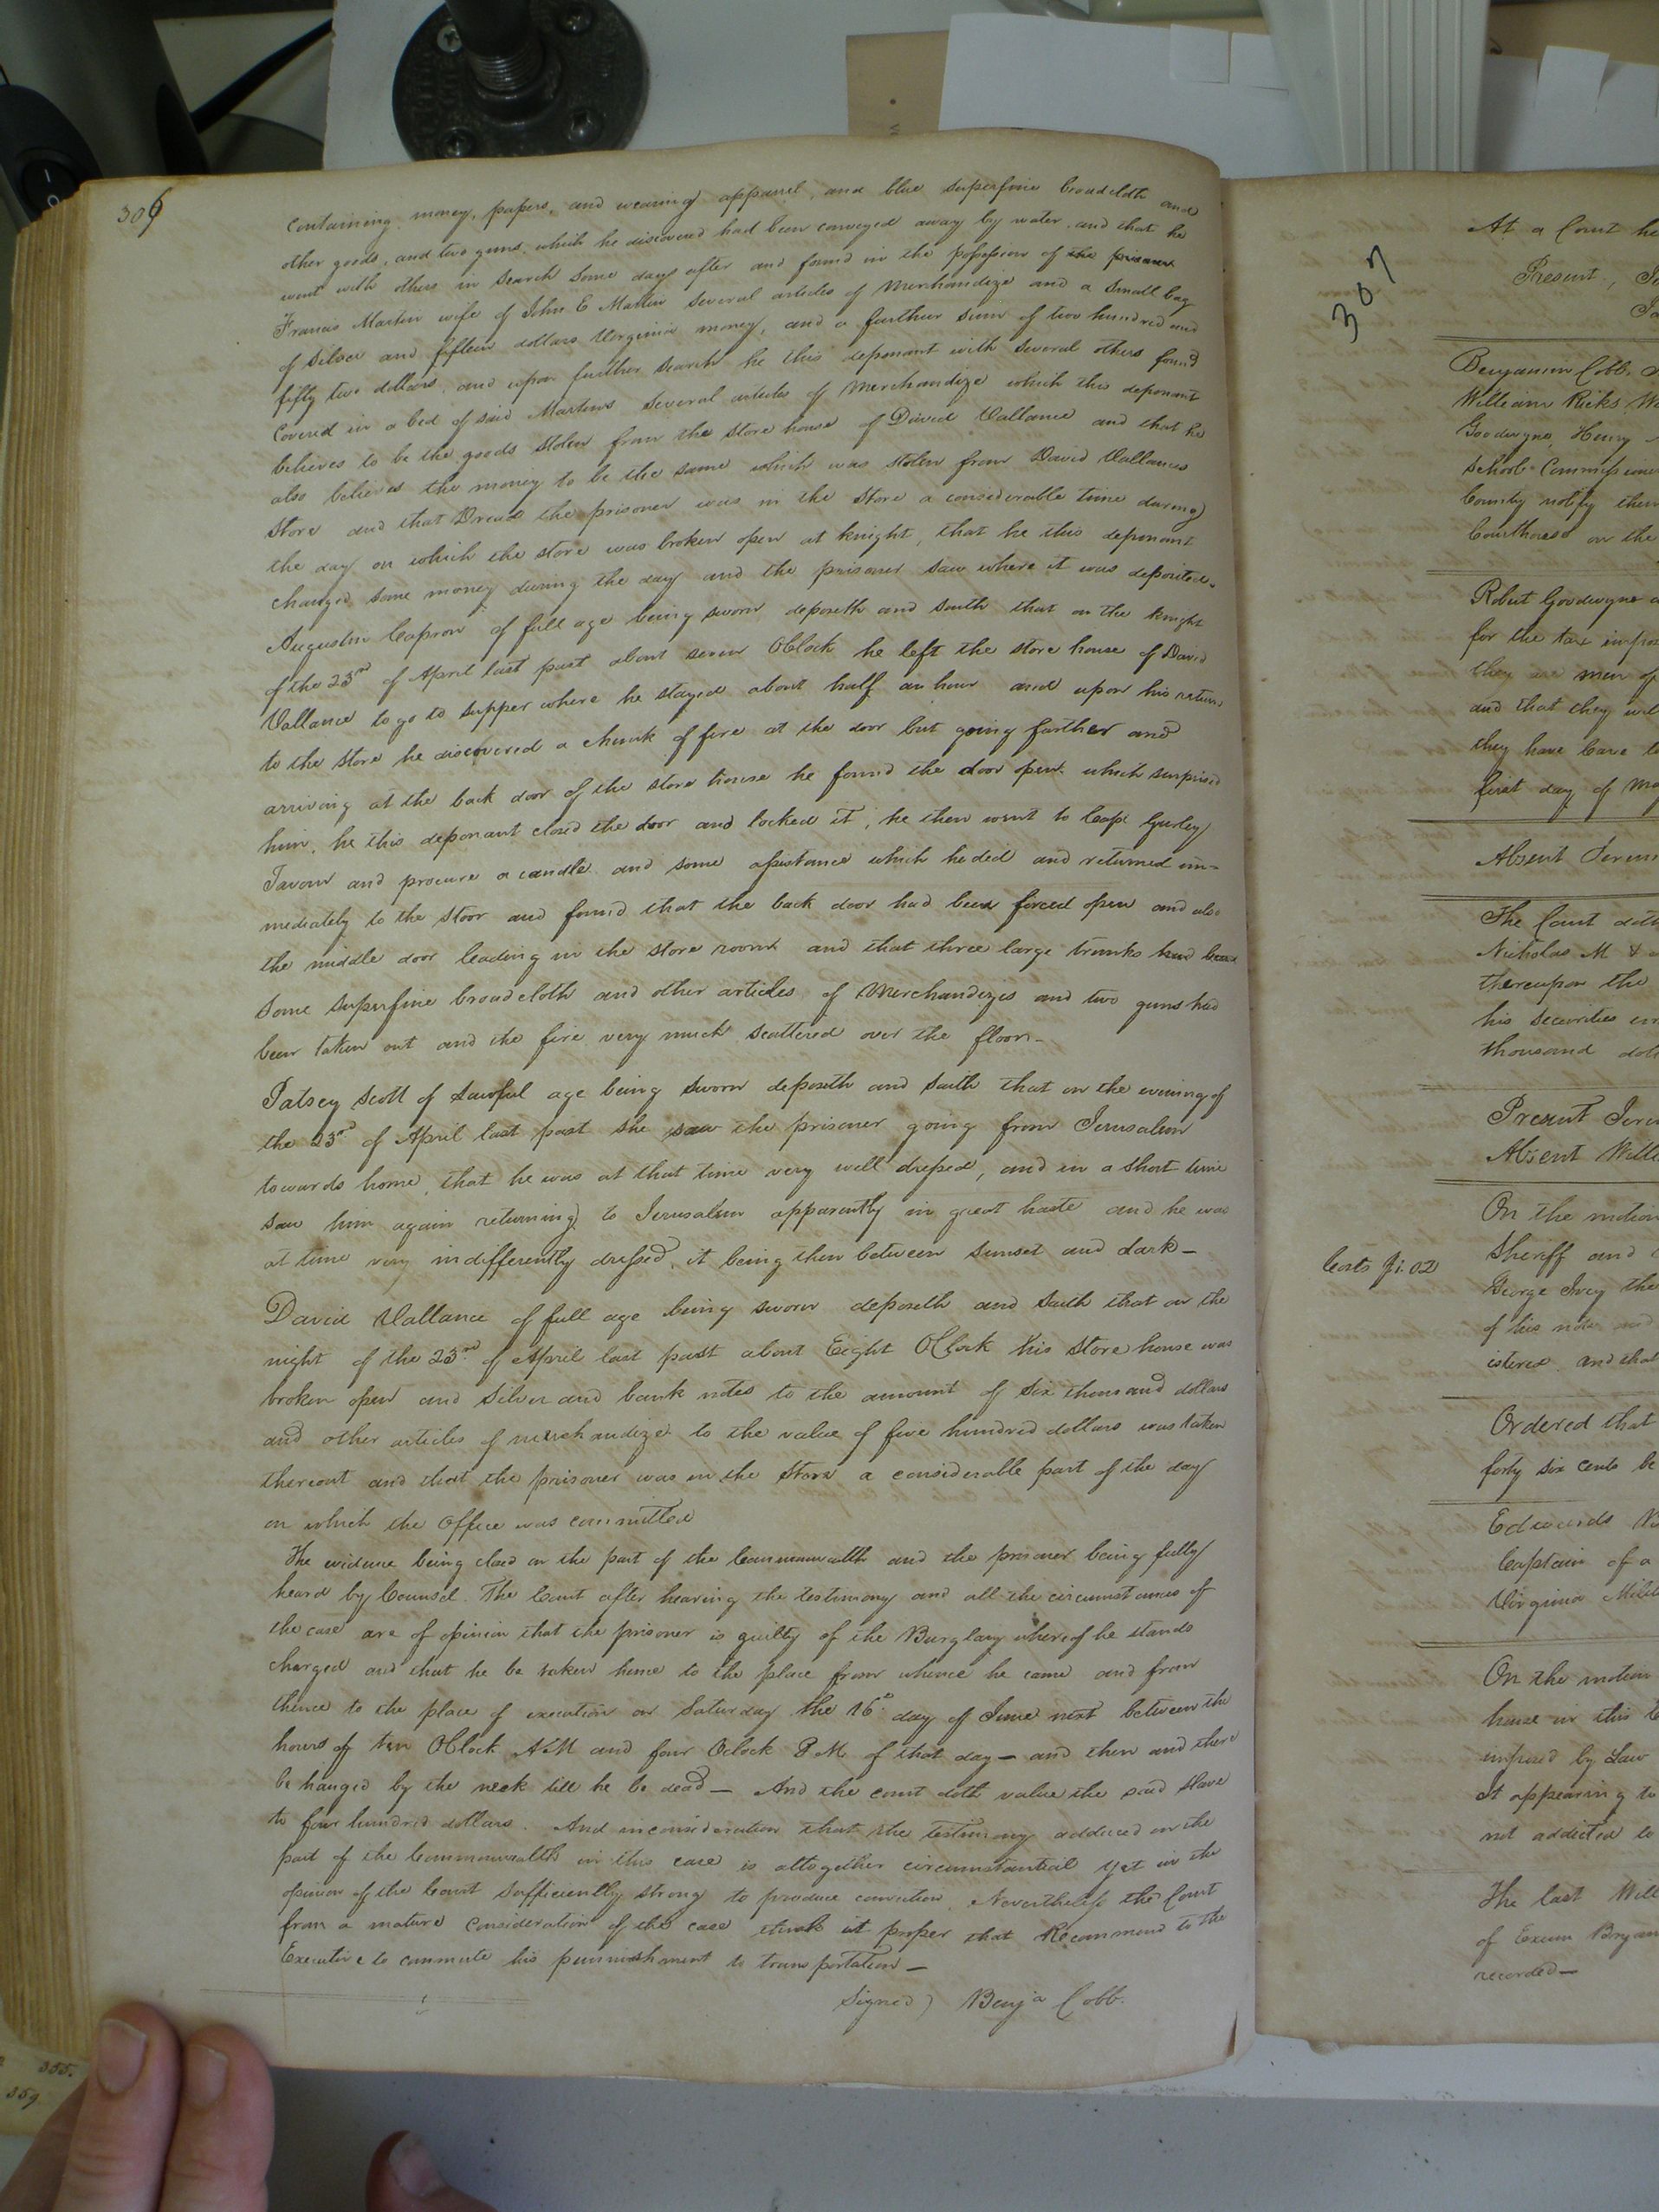 306
Containing money, papers, and wearing apparel, and blue superfine broadcloth and
other goods, and two guns, which he discovered had been conveyed away by water, and that he
went with others in search some days after and found in the possession of the prisoner
Francis Martin wife of John E Martin several articles of Merchandize and a small bag
of silver and fifteen dollars Virginia money, and a further sum of two hundred and
fifty two dollars, and upon further search he this deponant with several others found
Covered in a bed of said Martins several articles of Merchandize which this deponant
believes to be the goods stolen from the store house of David Vallance and that he
also believes the money to be the same which was stolen from David Vallances
Store and that Dread the prisoner was in the store a considerable time during
the day on which the store was broken open at knight, that he this deponant
changed some money during the day and the prisoner saw where it was deposited.
Augustin Capron of full age being sworn deposeth and saith that on the knight
of the 23rd of April last past about seven OClock he left the store house of David
Vallance to go to supper where he stayed about half an hour and upon his return
to the store he discovered a chunk of fire at the door but going farther and
arriving at the back door of the store house he found the door open which surprised
him, he this deponant closed the door and locked it, he then went to Capt Gurley
Tavern and procure a candle and some assistance which he ded and returned im=
mediately to the stoor and found that the back door had been forced open and also
the middle door leading in the store room and that three large trunks had been
some superfine broadcloth and other articles of Merchandizes and two guns had
been taken out and the fire very much scattered over the floor —
Patsey Scott of Lawful age being sworn deposeth and saith that on the evening of
the 23rd of April last past she saw the prisoner going from Jerusalem
towards home, that he was at that time very well dressed, and in a short time
saw him again returning to Jerusalem apparently in great haste and he was
at time very indifferently dressed, it being then between sunset and dark —
David Vallance of full age being sworn deposeth and saith that on the
night of the 23rd of April last past about Eight OClock his store house was
broken open and silver and bank notes to the amount of six thousand dollars
and other articles of merchandize to the value of five hundred dollars was taken
thereout and that the prisoner was in the store a considerable part of the day
on which the offece was committed
The evidence being closed on the part of the Commonwealth and the prisoner being fully
heard by Counsel. The Court after hearing the testimony and all the circumstances of
the case are of opinion that the prisoner is guilty of the Burglary whereof he stands
charged and that he be taken hence to the place from whence he came and from
thence to the place of execution on Saturday the 16th day of June next between the
hours of ten OClock A.M and four Oclock P M of that day — and then and there
be hanged by the neck till he be dead — And the court doth value the said slave
to four hundred dollars. And in consideration that the testimony adduced on the
part of the Commonwealth in this case is altogether circumstantial yet in the
opinion of the Court sufficiently strong to produce conviction Nevertheless the Court
from a mature consideration of the case think it proper that Recommend to the
Executive to commute his punishment to transportation —
Signed) Benja Cobb.
355.
359
307
At a Court he
Present,
Benjamin Cobb,
William Ricks, W
Goodwyne, Henry
School Commissione
County notify them
Courthouse on the
Robert Goodwyne a
for the tax impos
they are men of
and that they wil
they have leave to
first day of Ma
Absent Jerem
The Court doth
Nicholas M
thereupon the
his securities in
thousand doll
Present Jere
Absent Will
On the motion
Costs $1.02
Sheriff and
George Ivey the
of his note and
isterex and that
Ordered that
forty six cents be
Edwards
Captain of a
Virginia Milit
On the motion
house in this
imposed by Law
it appearing to
not addicted to
The last Will
of Exum Bryan
recorded —